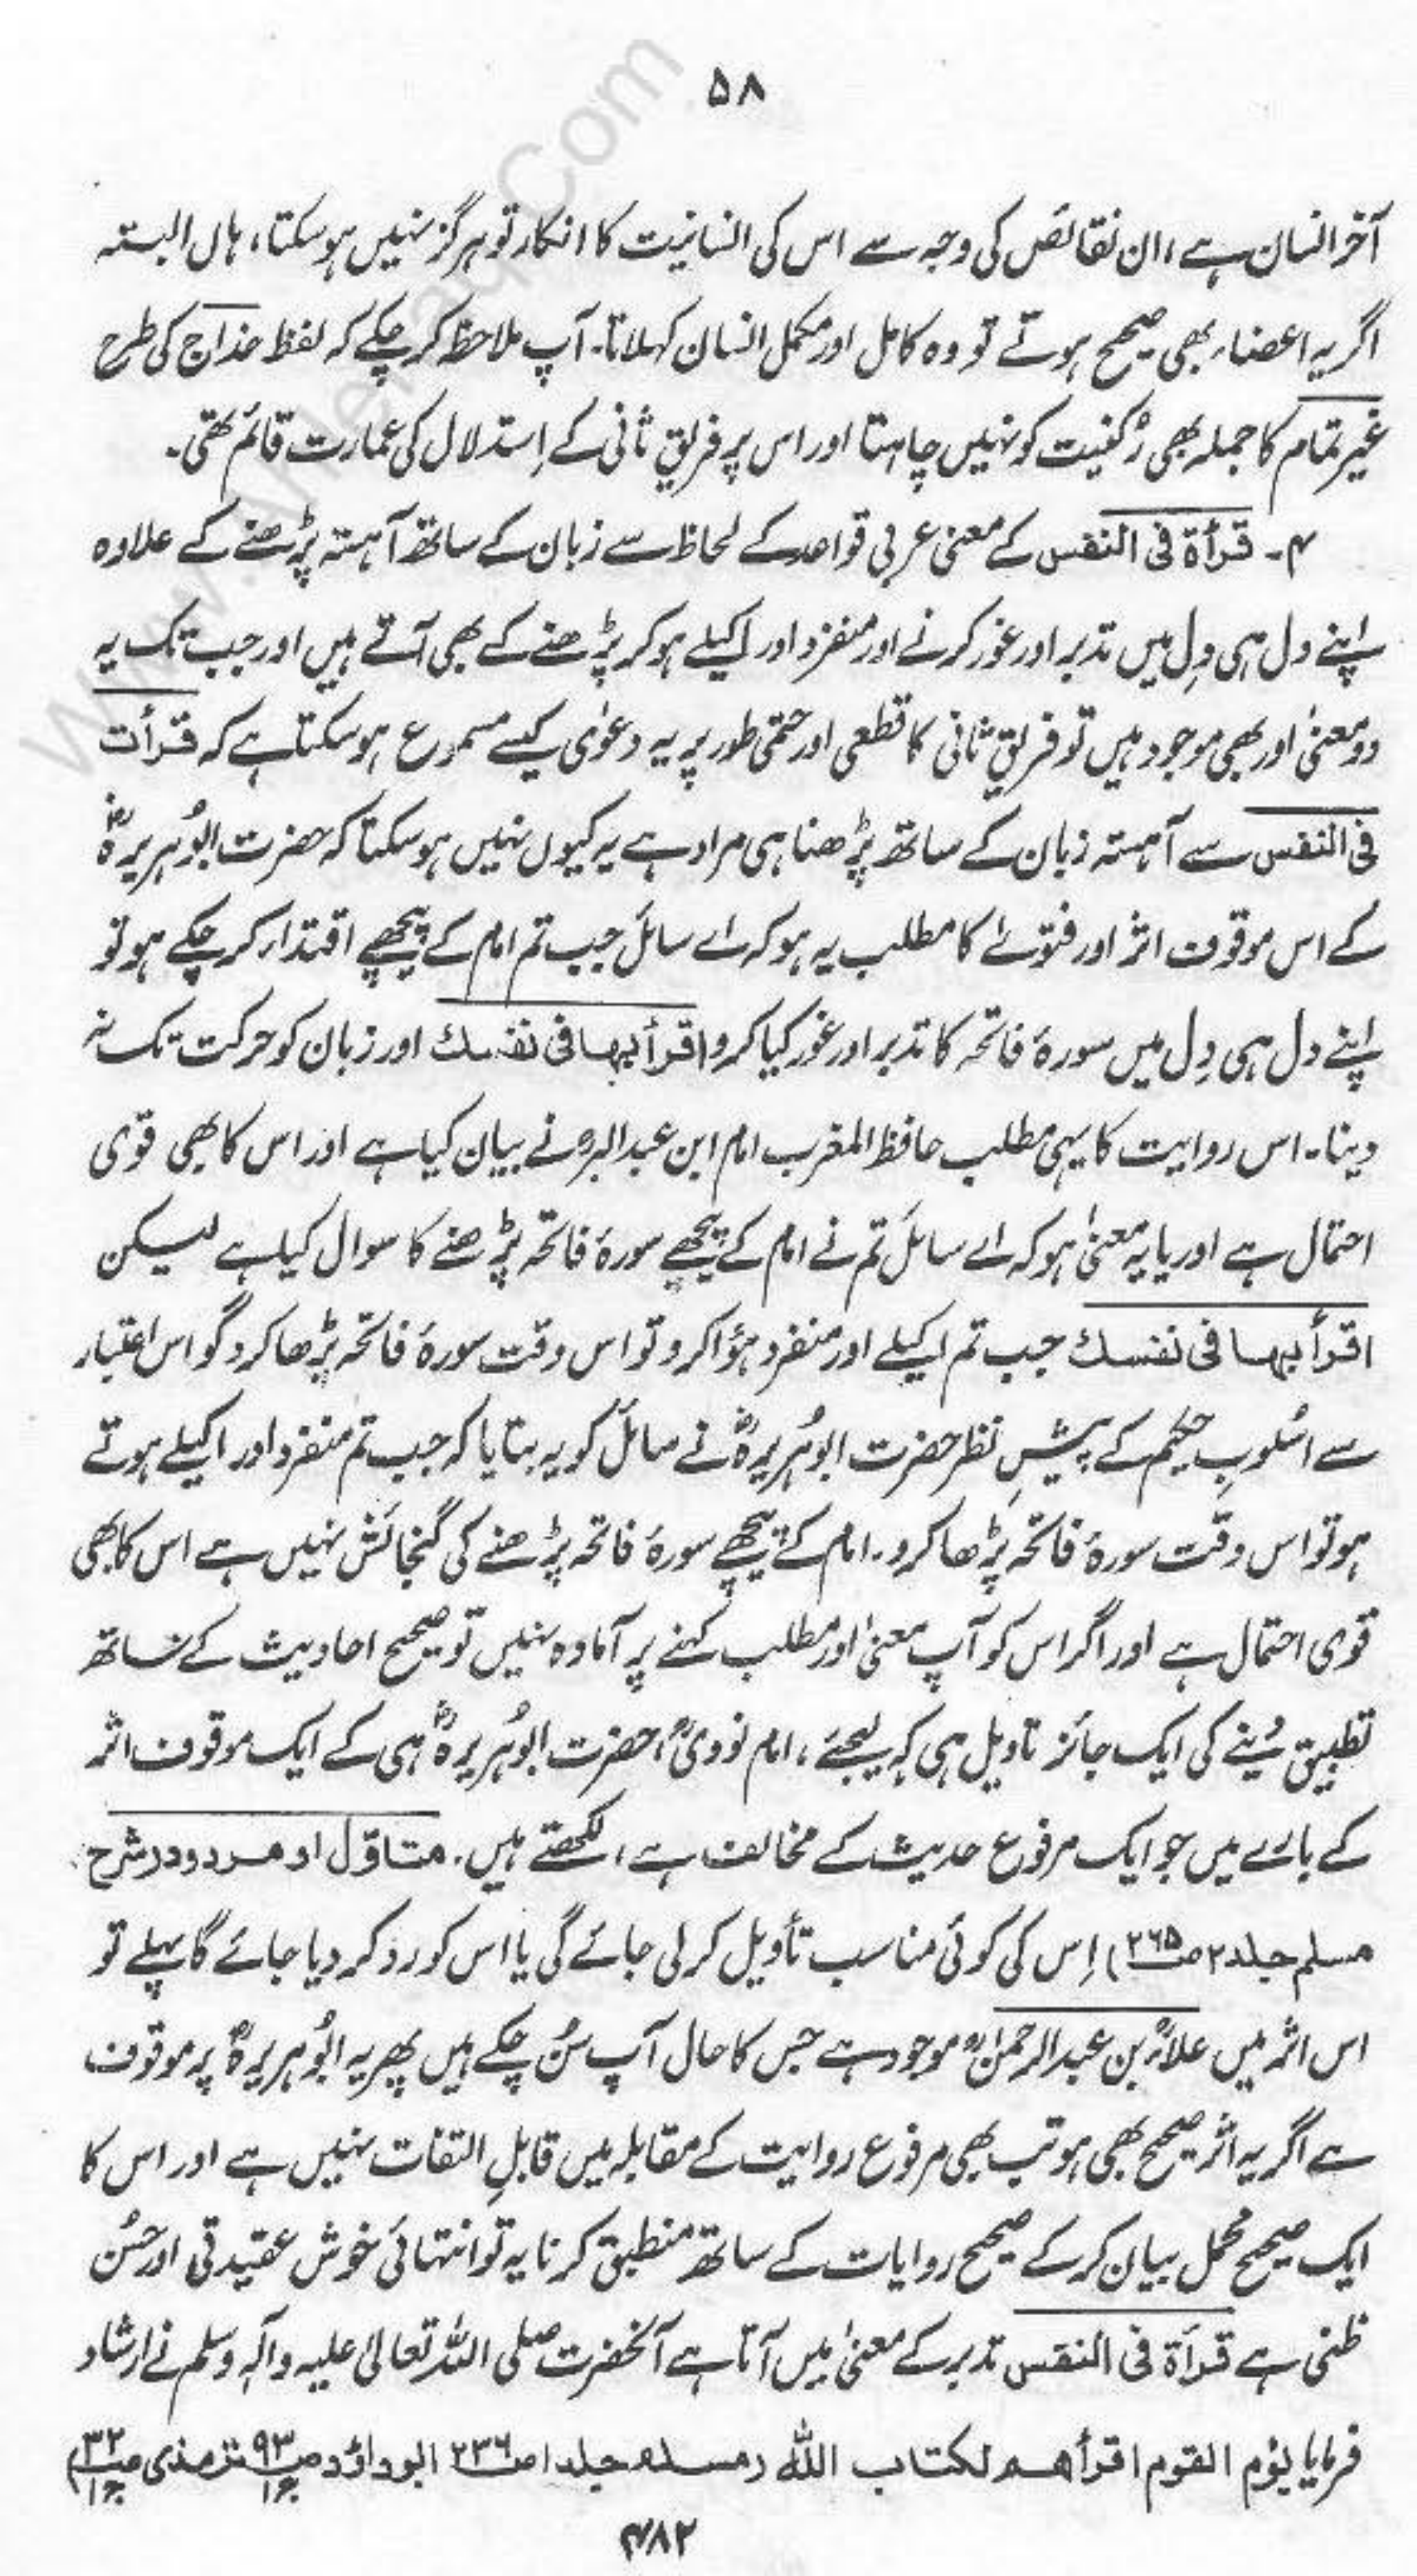 ۵۸
آخر انسان ہے، ان نقائص کی وجہ سے اس کی انسانیت کا انکار تو ہرگز نہیں ہو سکتا، ہاں البتہ
اگر یہ اعضاء بھی صحیح ہوتے تو وہ کامل اور مکمل انسان کہلاتا۔ آپ ملاحظہ کر چکے کہ لفظ خداج کی طرح
غیر تمام کا جملہ بھی رُکنیت کو نہیں چاہتا اور اس پر فریقِ ثانی کے اِستدلال کی عمارت قائم تھی۔
۴۔ قرأۃ فی النفس کے معنیٰ عربی قواعد کے لحاظ سے زبان کے ساتھ آہستہ پڑھنے کے علاوہ
اپنے دل ہی دِل میں تدبر اور غور کرنے اور منفرد اور اکیلے ہو کر پڑھنے کے بھی آتے ہیں اور جب تک یہ
دو معنیٰ اور بھی موجود ہیں تو فریقِ ثانی کا قطعی اور حتمی طور پر یہ دعوٰی کیسے مسموع ہو سکتا ہے کہ قرأت
فی النفس سے آہستہ زبان کے ساتھ پڑھنا ہی مراد ہے یہ کیوں نہیں ہو سکتا کہ حضرت ابوُہریرہؓ
کے اس موقوف اثر اور فتوےٰ کا مطلب یہ ہو کہ اے سائل جب تم امام کے پیچھے اقتداء کر چکے ہو تو
اپنے دل ہی دِل میں سورۂ فاتحہ کا تدبر اور غور کیا کرو اقرأ بہا فی نفسك اور زبان کو حرکت تک نہ
دینا۔ اس روایت کا یہی مطلب حافظ المغرب امام ابن عبدالبرؒ نے بیان کیا ہے اور اس کا بھی قوی
احتمال ہے اور یا یہ معنیٰ ہو کہ اے سائل تم نے امام کے پیچھے سورۂ فاتحہ پڑھنے کا سوال کیا ہے لیکن
اقرأ بہا فی نفسك جب تم اکیلے اور منفرد ہؤا کرو تو اس وقت سورۂ فاتحہ پڑھا کرو گو اس اعتبار
سے اسُلوبِ حکیم کے پیشِ نظر حضرت ابوہُریرہؓ نے سائل کو یہ بتایا کہ جب تم منفرد اور اکیلے ہوتے
ہو تو اس وقت سورۂ فاتحہ پڑھا کرو۔ امام کے پیچھے سورۂ فاتحہ پڑھنے کی گنجائش نہیں ہے اس کا بھی
قوی احتمال ہے اور اگر اس کو آپ معنیٰ اور مطلب کہنے پر آمادہ نہیں تو صحیح احادیث کے ساتھ
تطبیق دینے کی ایک جائز تاویل ہی کہہ لیجئے، امام نوویؒ، حضرت ابوُہریرہؓ ہی کے ایک موقوف اثر
کے بارے میں جو ایک مرفوع حدیث کے مخالف ہے، لکھتے ہیں۔ متاوّل او مردود (شرح
مسلم جلد ۲ ص۲۶۵) اِس کی کوئی مناسب تأویل کر لی جائے گی یا اس کو رد کر دیا جائے گا پہلے تو
اس اثر میں علاءؒ بن عبدالرحمٰنؒ موجود ہے جس کا حال آپ سُن چکے ہیں پھر یہ ابوُہریرہؓ پر موقوف
ہے اگر یہ اثر صحیح بھی ہو تب بھی مرفوع روایت کے مقابلہ میں قابلِ التفات نہیں ہے اور اس کا
ایک صحیح محمل بیان کر کے صحیح روایات کے ساتھ منطبق کرنا یہ تو انتہائی خوش عقیدتی اور حُسنِ
ظنی ہے قرأۃ فی النفس تدبر کے معنیٰ میں آتا ہے آنحضرت صلی اللہ تعالیٰ علیہ وآلہٖ وسلم نے ارشاد
فرمایا یؤم القوم اقرأھم لکتاب اللہ (مسلم جلد ۱ ص۲۳۶ ابوداؤد ص۹۳ ج۱ ترمذی ص۳۲ ج۱)
۴۸۲
www.AlHaqq.Com